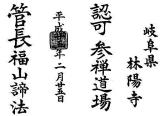 岐阜県
林陽寺
認可 参禅道場
平成 年二月廿五日
管長福山諦法